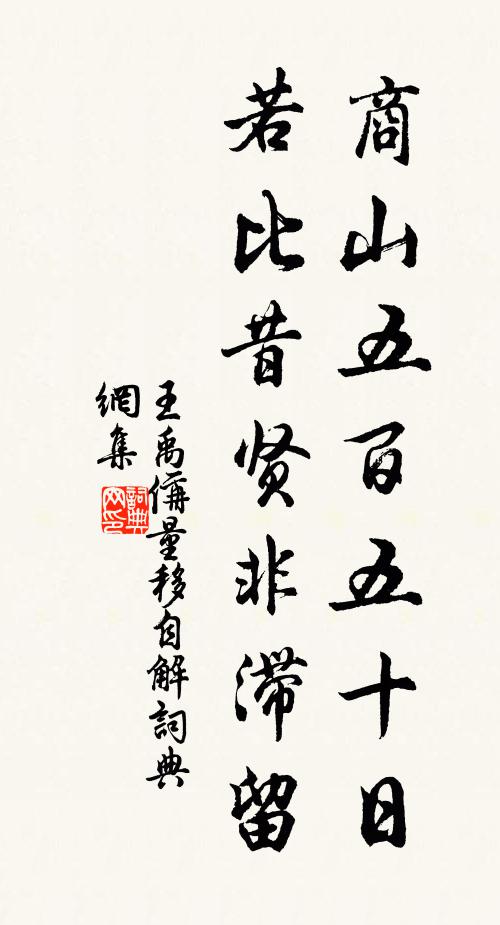 商山五百五十日
若比昔贤非滞留
王禹偁量移自解詞典
網集
詞典
网印